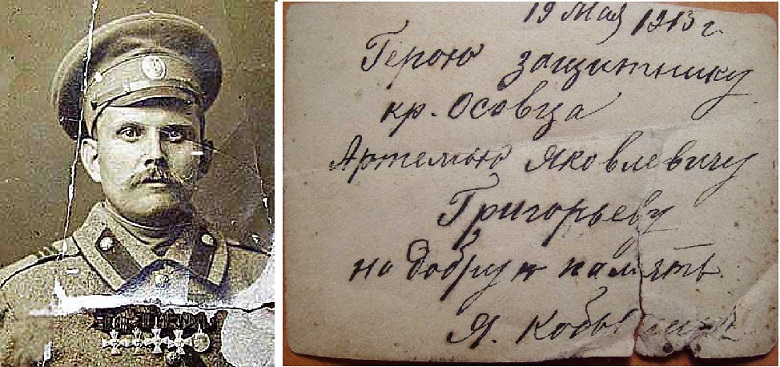 19 Мая 1915 г.
Герою защитнику
кр. Осовца
Артемью Яковлевичу
Григорьеву
на добрую память
Я.